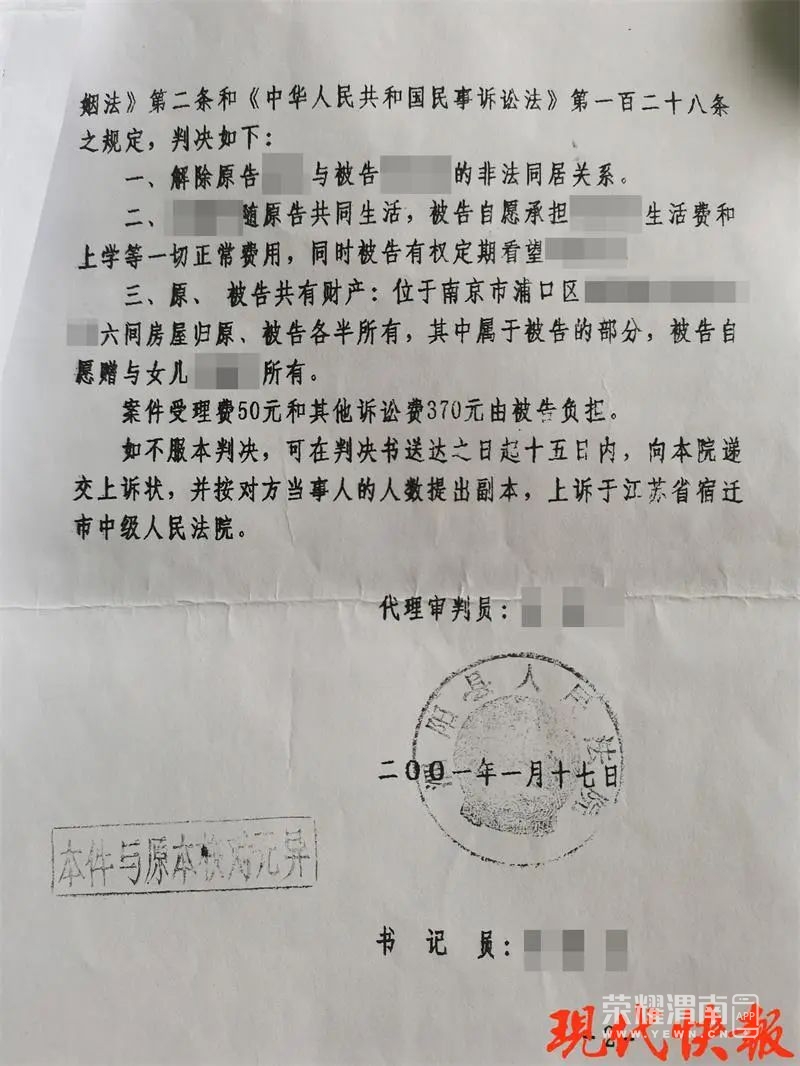 姻法》第二条和《中华人民共和国民事诉讼法》第一百二十八条
之规定，判决如下：
一、解除原告 与被告 的非法同居关系。
二、 随原告共同生活，被告自愿承担 生活费和
上学等一切正常费用，同时被告有权定期看望
三、原、被告共有财产：位于南京市浦口区
六间房屋归原、被告各半所有，其中属于被告的部分，被告自
愿赠与女儿 所有。
案件受理费50元和其他诉讼费370元由被告负担。
如不服本判决，可在判决书送达之日起十五日内，向本院递
交上诉状，并按对方当事人的人数提出副本，上诉于江苏省宿迁
市中级人民法院。
代理审判员：
阳县人民法院
二00一年一月十七日
本件与原本核对无异
书记员：
荣耀渭南APP
WWW.YEWN.CN
现代快报
-2-